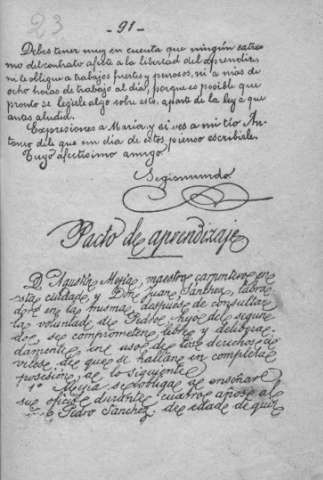 23
-91-
Debes tener muy en cuenta que ningún extre-
mo del contrato afecte a la libertad del aprendiz,
ni le obligue a trabajos fuertes y penosos, ni a más de
ocho horas de trabajo al día, porque es posible que
pronto se legisle algo sobre esto, aparte de la ley a que
antes aludía.
Expresiones a María, y si ves a mi tío An-
tonio dile que un día de estos pienso escribirle.
Tuyo afectísimo amigo
Segismundo
Pacto de aprendizaje
D. Agustín Mejía, maestro carpintero en
esta ciudad y Don Juan Sánchez, labra-
dor en la misma, después de consultar
la voluntad de Pedro, hijo del segun-
do, se comprometen libre y delibera-
damente, en uso de los derechos ci-
viles, de que se hallan en completa
posesión, a lo siguiente
1º Mejía se obliga a enseñar
su oficio durante cuatro años al
Pedro Sánchez, de edad de quin